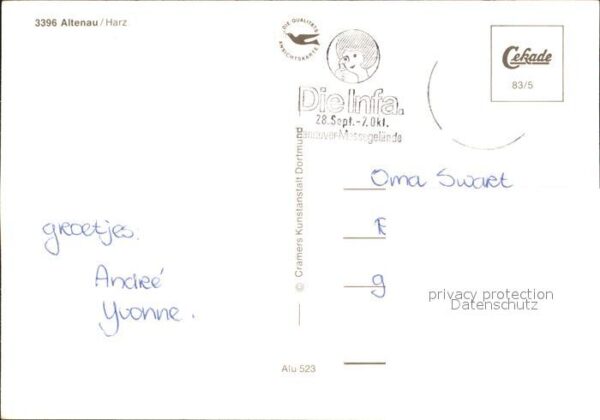 3396 Altenau / Harz
DIE QUALITÄTS
ANSICHTSKARTE
Die Infa.
28. Sept. - 7. Okt.
Hannover-Messegelände
Cekade
83/5
© Cramers Kunstanstalt Dortmund
Oma Swart
groetjes.
André
Yvonne.
g
privacy protection
Datenschutz
Alu 523